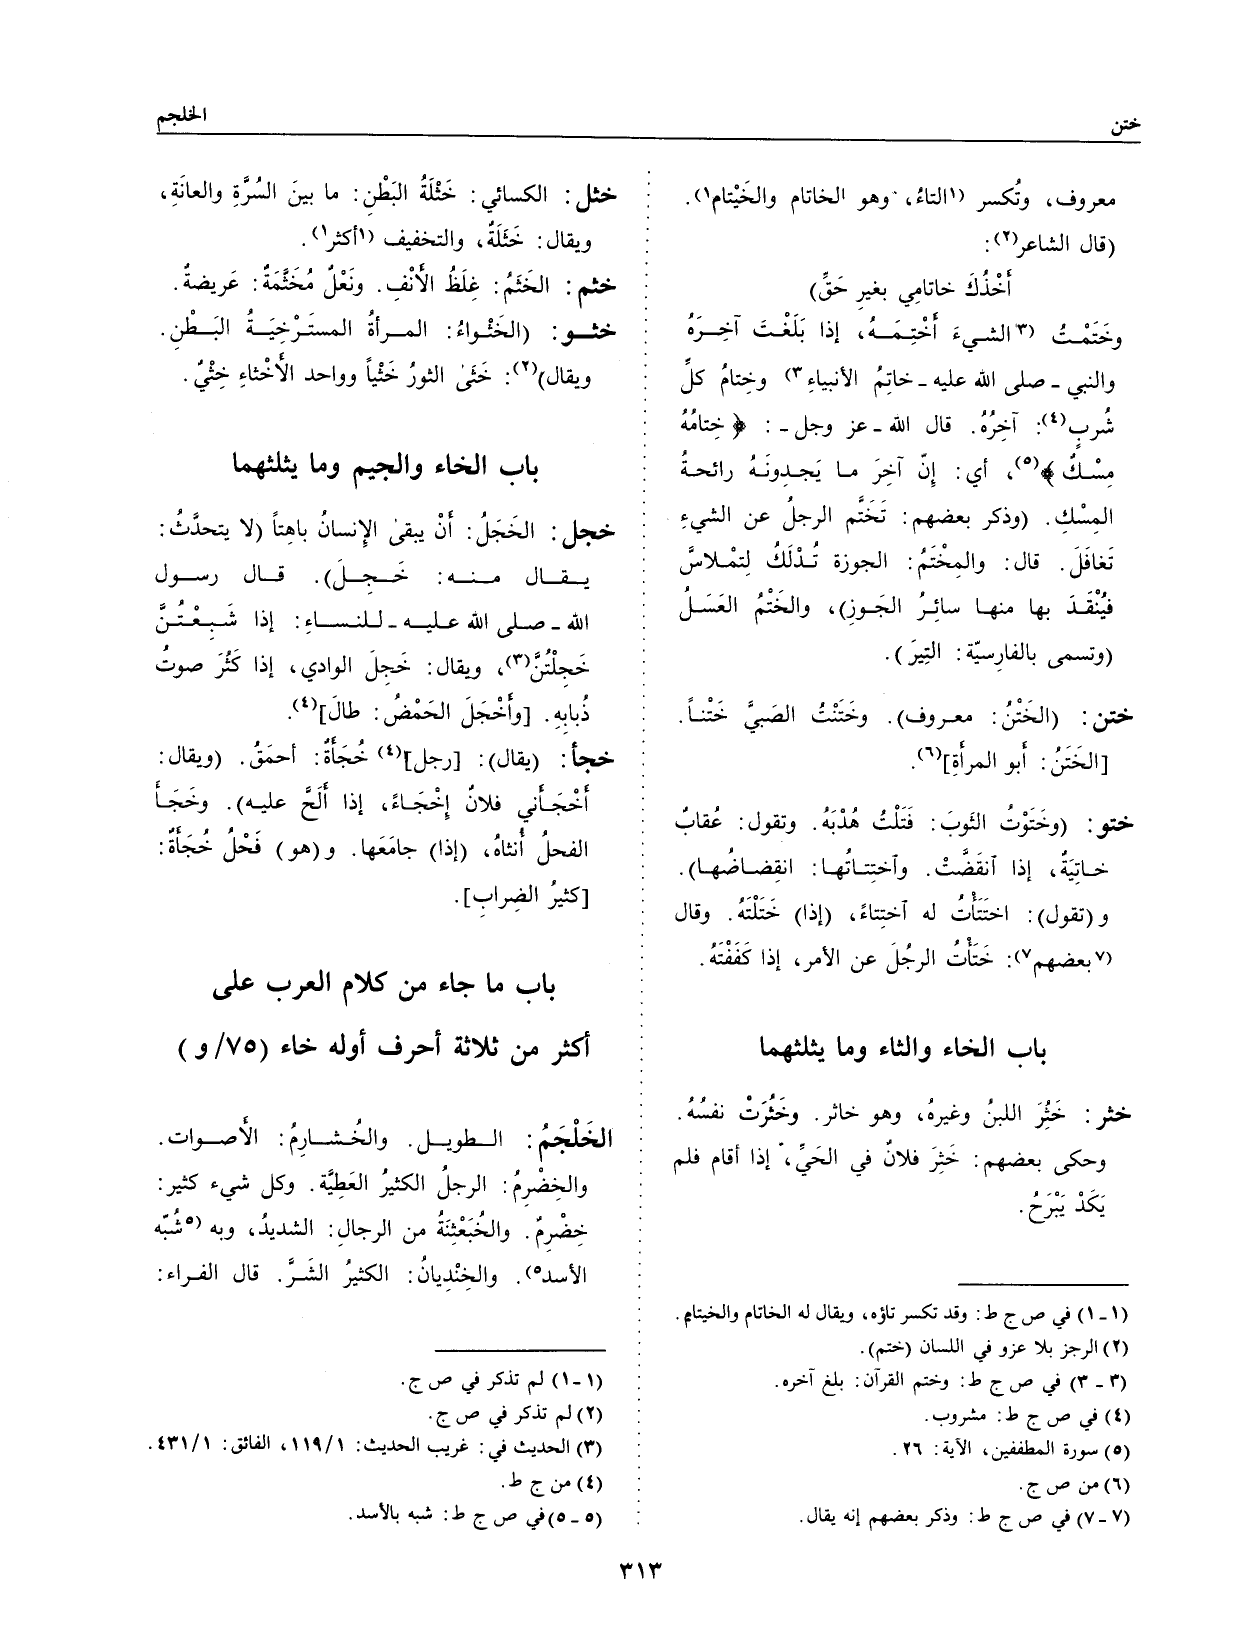 ختن
الخلجم
معروف، وتُكسر (١التاءُ، وهو الخاتام والخَيْتام١).
(قال الشاعر(٢):
أَخْذُكَ خاتامي بغير حَقِّ)
وخَتَمْتُ (٣الشيءَ أَخْتِمَهُ، إذا بَلَغْتَ آخِرَهُ
والنبي ـ صلى الله عليه ـ خاتِمُ الأنبياءِ٣) وخِتامُ كلِّ
شُربٍ(٤): آخِرُهُ. قال الله ـ عز وجل ـ : ﴿ خِتامُهُ
مِسْكٌ ﴾(٥)، أي: إنّ آخِرَ ما يَجِدونَهُ رائحةُ
المِسْك. (وذكر بعضهم: تَخَتَّم الرجلُ عن الشيءِ
تَغافَلَ. قال: والمِخْتَمُ: الجوزة تُدْلَكُ لِتمْلاسَّ
فيُنْقَدَ بها منها سائِرُ الجَوز)، والخَتْمُ العَسَلُ
(وتسمى بالفارسيّة: التِيَر).
ختن: (الخَتْنُ: معروف). وخَتَنْتُ الصَبيَّ خَتْناً.
[الخَتَنُ: أبو المرأةِ](٦).
ختو: (وخَتَوْتُ الثوبَ: فَتَلْتُ هُدْبَهُ. وتقول: عُقابٌ
خاتِيَةٌ، إذا ٱنقَضَّتْ. وٱختِتاتُها: انقِضاضُها).
و (تقول): اختَتَأْتُ له ٱختِتاءً، (إذا) خَتَلْتَهُ. وقال
(٧بعضهم٧): خَتَأْتُ الرجُلَ عن الأمر، إذا كَفَفْتَهُ.
باب الخاء والثاء وما يثلثهما
خثر: خَثُرَ اللبنُ وغيرهُ، وهو خاثر. وخَثُرَتْ نفسُهُ.
وحكى بعضهم: خَثِرَ فلانٌ في الحَيِّ، إذا أقام فلم
يَكَدْ يَبْرَحُ.
(١ـ١) في ص ج ط: وقد تكسر تاؤه، ويقال له الخاتام والخيتام.
(٢) الرجز بلا عزو في اللسان (ختم).
(٣ ـ ٣) في ص ج ط: وختم القرآن: بلغ آخره.
(٤) في ص ج ط: مشروب.
(٥) سورة المطففين، الآية: ٢٦.
(٦) من ص ج.
(٧ ـ ٧) في ص ج ط: وذكر بعضهم إنه يقال.
خثل: الكسائي: خَثْلَةُ البَطْنِ: ما بينَ السُرَّةِ والعانَةِ،
ويقال: خَثَلَةٌ، والتخفيف (١أكثر١).
خثم: الخَثَمُ: غِلَظُ الأنْفِ. ونَعْلٌ مُخَثَّمَةٌ: عَريضةٌ.
خثو: (الخَثْواءُ: المرأةُ المستَرْخِيَةُ البَطْنِ.
ويقال)(٢): خَثَىٰ الثورُ خَثْياً وواحد الأَخْثاءِ خِثْيٌ.
باب الخاء والجيم وما يثلثهما
خجل: الخَجَلُ: أَنْ يبقىٰ الإِنسانُ باهِتاً (لا يتحدَّثُ:
يقال منه: خَجِلَ). قال رسول
الله ـ صلى الله عليه ـ للنساءِ: إذا شَبِعْتُنَّ
خَجِلْتُنَّ(٣)، ويقال: خَجِلَ الوادي، إذا كَثُرَ صوتُ
ذُبابِهِ. [وأَخْجَلَ الحَمْضُ: طالَ](٤).
خجأ: (يقال): [رجل](٤) خُجَأَةٌ: أحمَقُ. (ويقال:
أَخْجَأَني فلانٌ إِخْجَاءً، إذا أَلَحَّ عليه). وخَجَأَ
الفحلُ أُنثاهُ، (إذا) جامَعَها. و (هو) فَحْلٌ خُجَأَةٌ:
[كثيرُ الضِرابِ].
باب ما جاء من كلام العرب على
أكثر من ثلاثة أحرف أوله خاء (٧٥/ و)
الخَلْجَمُ: الطويل. والخُشارِمُ: الأصوات.
والخِضْرِمُ: الرجلُ الكثيرُ العَطِيَّة. وكل شيء كثير:
خِضْرِمٌ. والخُبَعْثِنَةُ من الرجال: الشديدُ، وبه (٥شُبّه
الأسد٥). والخِنْذِيانُ: الكثيرُ الشَرَّ. قال الفراء:
(١ـ١) لم تذكر في ص ج.
(٢) لم تذكر في ص ج.
(٣) الحديث في: غريب الحديث: ١١٩/١، الفائق: ٤٣١/١.
(٤) من ج ط.
(٥ ـ ٥) في ص ج ط: شبه بالأسد.
٣١٣